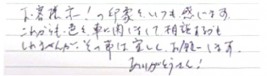 お客様へ!の印象をいつも感じます。
これからも色々事に関しまして相談するかも
しれませんが、その節は宜しくお願いします。
ありがとうさん!